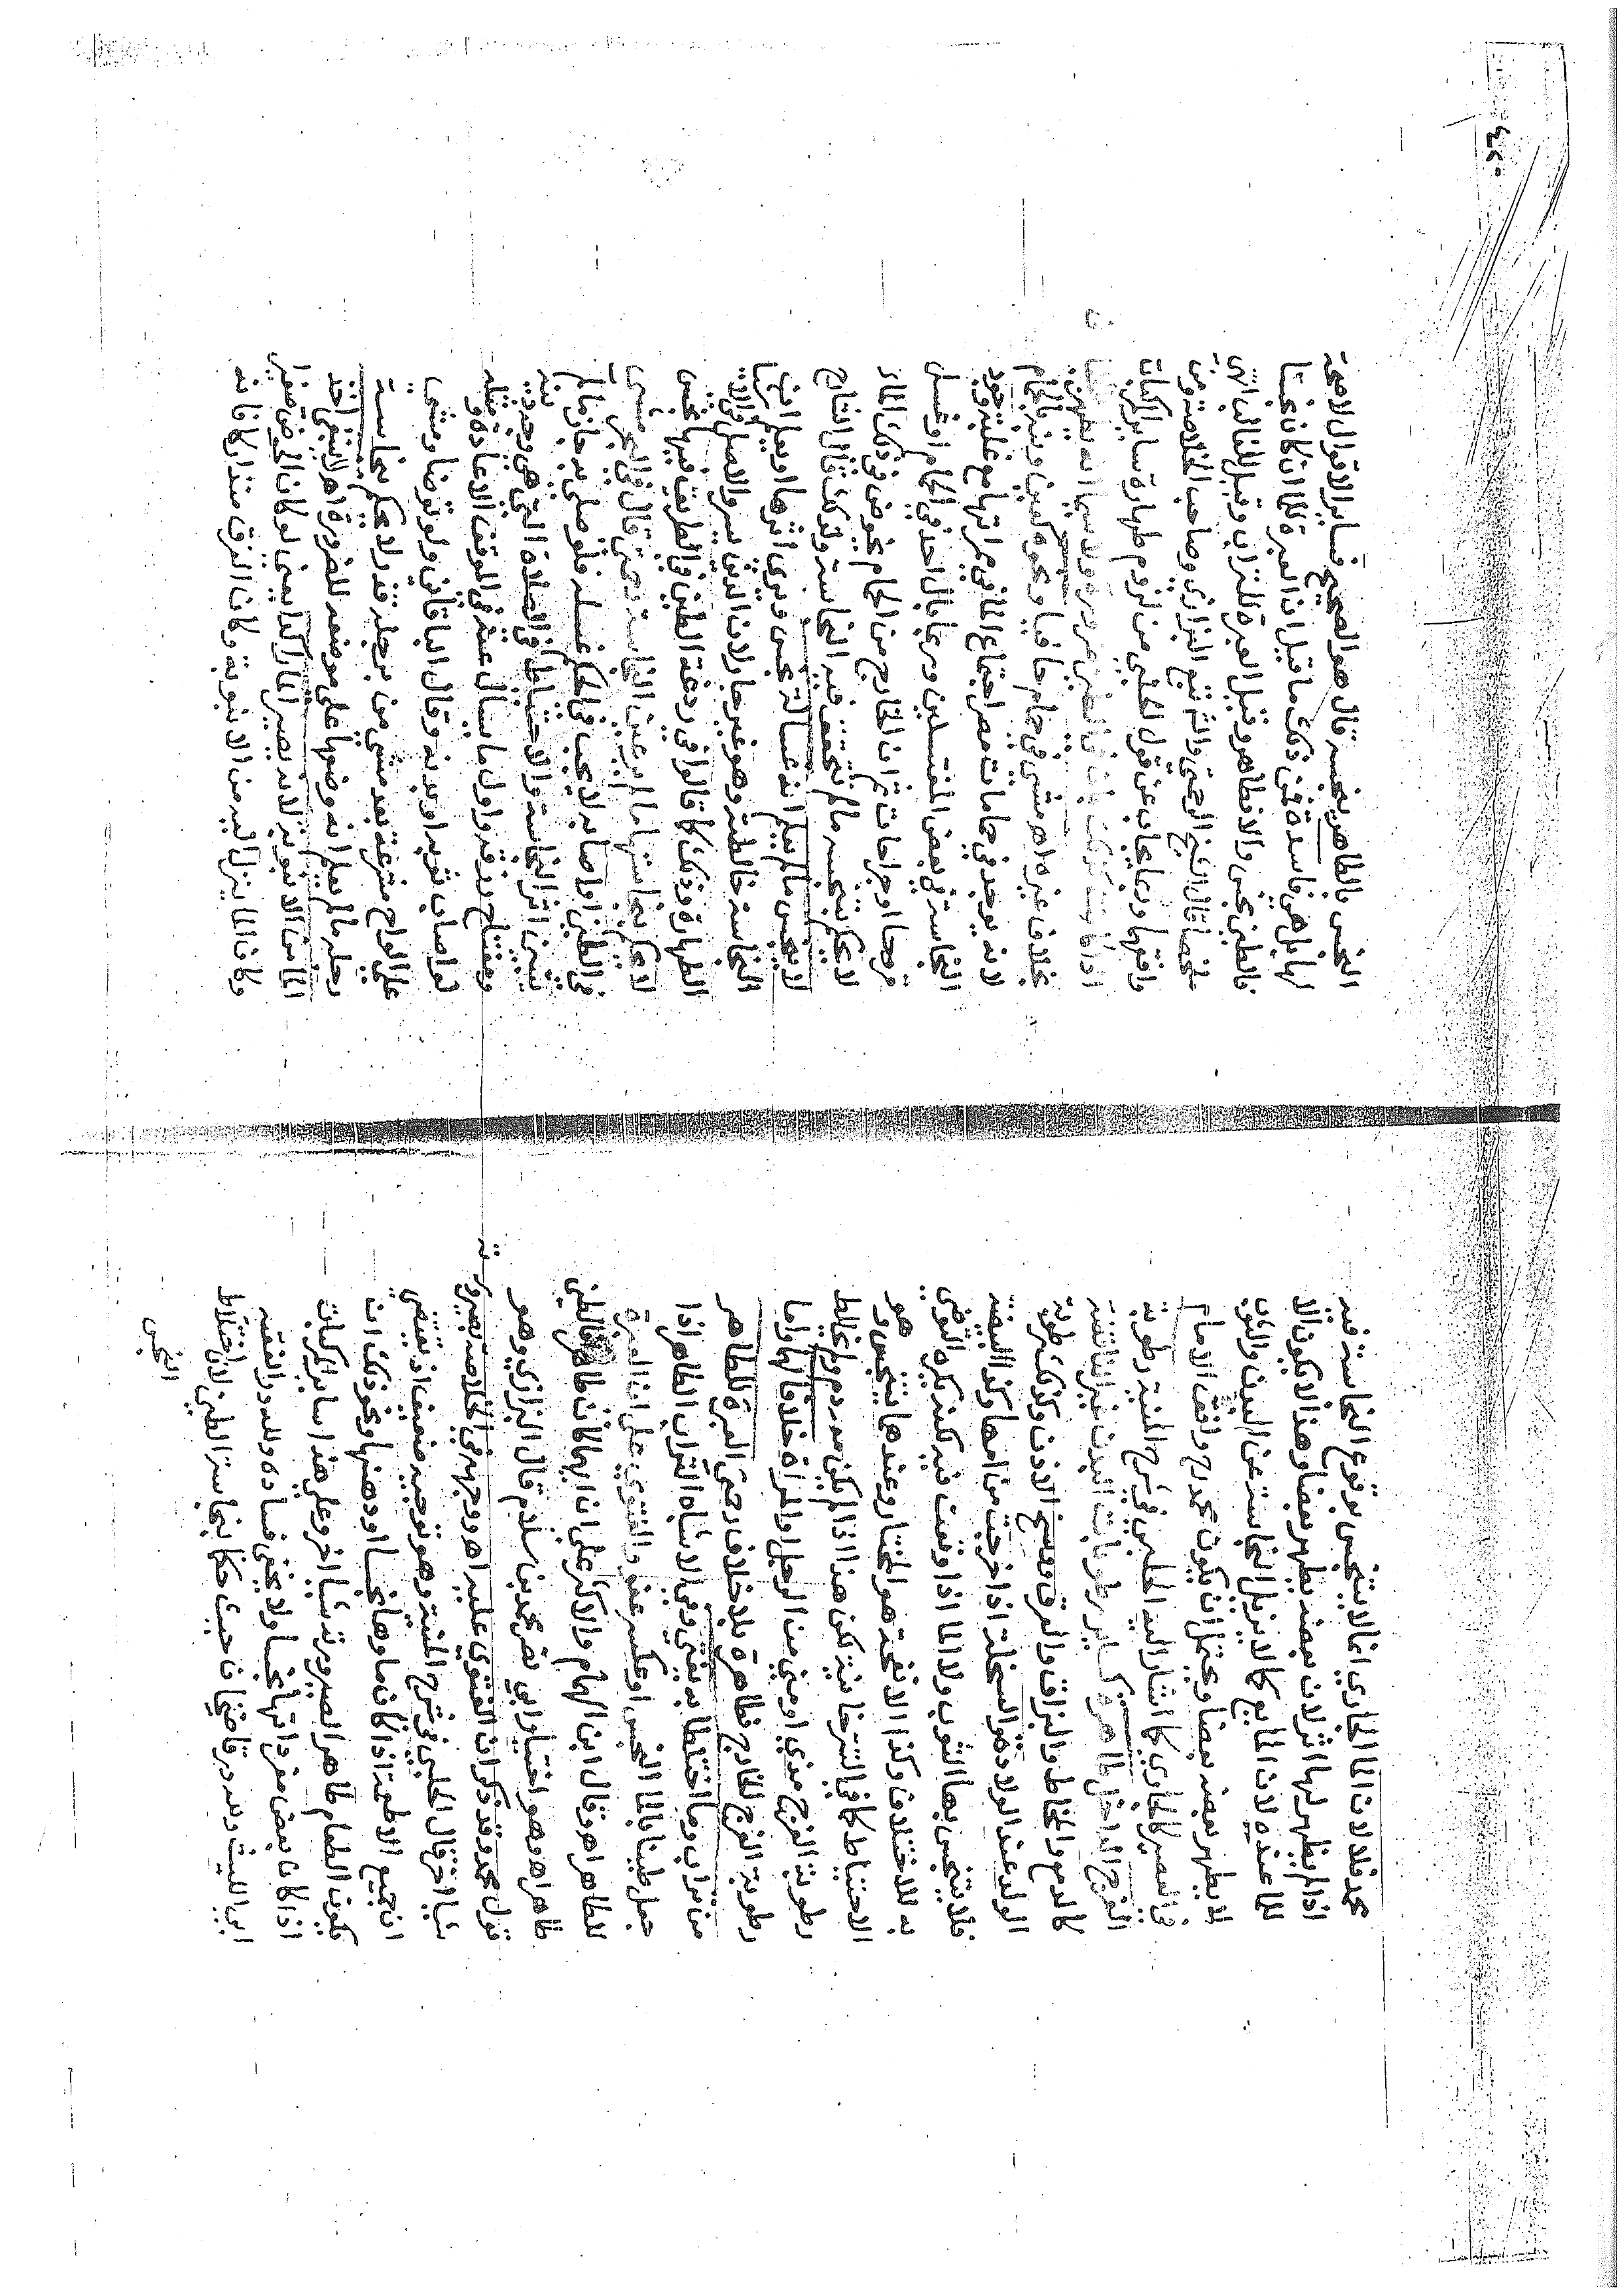 محمد فلان الما الجاري انما لا يتنجس بوقوع النجاسة فيه
اذا لم يظهر لها اثر لان بعضه يطهر بعضا وهذا لا يكون الا
للما عنده لان المايع لا يزيل النجاسة عن البدن والثوب
لا يطهر بعضه بعضا ويحتمل ان يكون محمد رح وافق الامام
في العصير كالجاري كما اشار اليه الحلبي في شرح المنية رطوبة
الفرج الداخل طاهرة كساير رطوبات البدن غير الناقضة
كالدمع والمخاط والبزاق والعرق ووسخ الاذن وكذلك رطوبة
الولد عند الولادة والسخلة اذا خرجت من امها وكذا البيضة
فلا يتنجس بها الثوب ولا الما اذا وقعت فيه لكنه يكره التوضي
به للاختلاف وكذا الانفحة هو المختار وعندهما يتنجس وهو
الاحتياط كما في التترخانية لكن هذا اذا لم يكن معه دم ولم يخالط
رطوبة الفرج مذي او مني من الرجل او المراة خلافا لهما واما
رطوبة الفرج الخارج فطاهرة بلا خلاف رحى العبرة للطاهر
من تراب وما اختلطا به يفتى وفي الاشباه التراب الطاهر اذا
جعل طينا بالما النجس او عكسه عفو والفتوى على ان العبرة
للطاهر اهـ وقال ابن الهمام والاكثر على ان ايهما كان طاهرا فالطين
طاهر اهـ وهو اختيار ابي نصر محمد بن سلام قال البزازي وهو
قول محمد وقد ذكر ان الفتوى عليه اهـ ووجهه في الخلاصة بصيرورته
شيا اخر قال الحلبي في شرح المنية وهو توجيه ضعيف اذ يقتضي
ان جميع الاطعمة اذا كان ماوها نجسا او دهنها ونحو ذلك ان
يكون الطعام طاهرا لصيرورته شيا اخر وعلى هذا ساير المركبات
اذا كان بعض مفرداتها نجسا ولا يخفى فساده وللـه در الفقيه
ابي الليث وللـه در قاضيخان حيث حكما بنجاسة الطين لان اختلاط
النجس
النجس بالطاهر ينجسه قال هو الصحيح فساير الاقوال لا صحة
لها بل هي فاسدة فمن ذلك ما قيل ان العبرة للما ان كان نجسا
فالطين نجس والا فطاهر وقيل العبرة للتراب وقيل للغالب انتهى
ملخصا قال الشيخ الرحمتي والشرح تبع البزازي وصاحب الخلاصة ومن
وافقهما وربما يجاب عن قول الحلبي من لزوم طهارة ساير المركبات
بخلاف غيره اهـ مشى في حمام حافيا ونحوه كعين وضوء الحمام
لانه يوجد في حمامات مصر اجتماع الما في ممراتها مع غلبة وقود
النجاسة في بعض المغتسلين وربما بال احد في الحمام او غسل
فرجها او جراحات ثم ان الخارج من الحمام يخوض في ذلك الماء
لا يحكم بتنجسه مالم يتحقق فيه النجاسة ولذلك قال الشارح
لا يتنجس مالم يعلم انه غسالة نجس ويرى اثرها او يعلم ان
النجاسة خالطته وهو غير جار لان الدين يسر والاصل في الاشيا
الطهارة وذلك كما قالوا في ردغة الطين في الطريق فيها نجس
لا يحكم بنجاستها مالم ير عين النجاسة رحمتي قال في البحر مشى
في الطين او اصابه لا يجب في الحكم غسله فلو صلى به جاز مالم
يتبين اثر النجاسة والاحتياط في الصلاة التي هي وجه دينه
ومفتاح رزقه واول ما يسال عنه في الموقف الاعادة ومثله
لو اصاب ثوبه او بدنه وقال الباقاني ولو توضا ومشى
على الواح مشرعة بعد مشي من برجله قذر لا يحكم بنجاسة
رجله مالم يعلم انه وضعها على موضعه للضرورة اهـ لا ينبغي اخذ
الما من الانبوبة لانه يصير الما راكدا يعني لو كان الحوض صغيرا
وكان الما ينزل اليه من الانبوبة وكان الغرف متداركا فانه